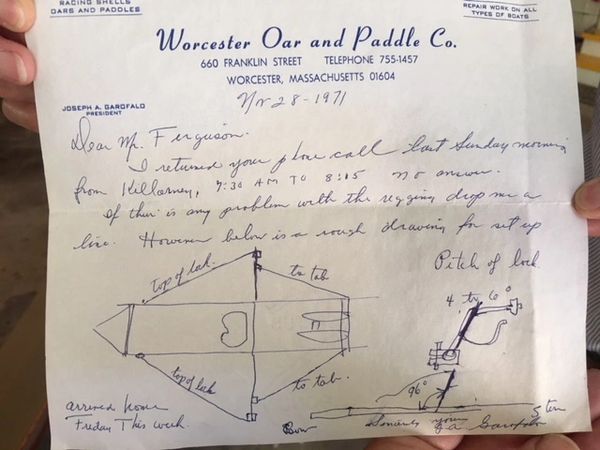 RACING SHELLS
OARS AND PADDLES
REPAIR WORK ON ALL
TYPES OF BOATS
Worcester Oar and Paddle Co.
660 FRANKLIN STREET TELEPHONE 755-1457
WORCESTER, MASSACHUSETTS 01604
JOSEPH A. GAROFALO
PRESIDENT
28-1971
Dear Mr. Ferguson.
I returned your phone call last Sunday morning
from Killarney, 7:30 AM TO 8:15 no answer.
If their is any problem with the rigging drop me a
line. However below is a rough drawing for set up
Pitch of lock
top of lock.
to tab
4 to 6°
top of lock
to tab.
96°
arrived home
Friday This week.
Bow
Stern
Sincerely yours
J.A. Garofalo